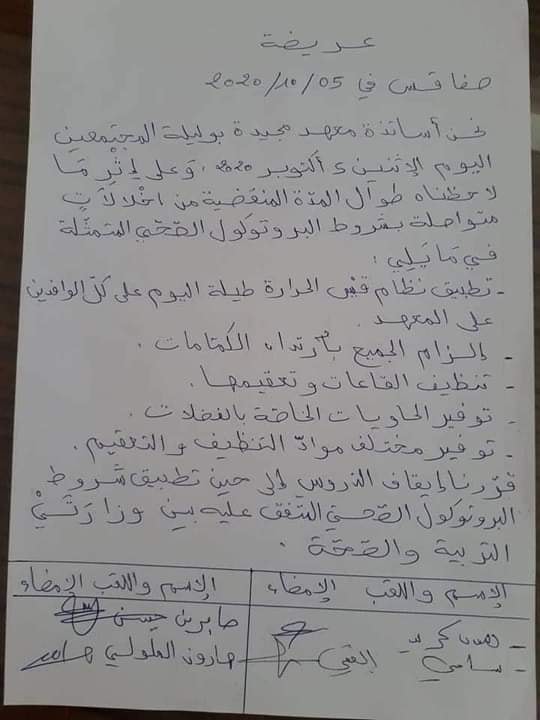 عريضة
صفاقس في 2020/10/05
نحن أساتذة معهد مجيدة بوليلة المجتمعين
اليوم الإثنين 5 أكتوبر 2020، وعلى إثر ما
لاحظناه طوال المدة المنقضية من اخلالات
متواصلة بشروط البروتوكول الصّحّي المتمثلة
في ما يلي :
- تطبيق نظام قيس الحرارة طيلة اليوم على كلّ الوافدين
على المعهد .
- إلزام الجميع بارتداء الكمّامات .
- تنظيف القاعات وتعقيمها .
- توفير الحاويات الخاصّة بالفضلات .
- توفير مختلف موادّ التنظيف والتعقيم .
قرّرنا إيقاف الدّروس إلى حين تطبيق شروط
البروتوكول الصّحيّ المتّفق عليه بين وزارتَيْ
التربية والصّحّة .
الإسم واللقب الإمضاء الإسم واللقب الإمضاء
صابرين حسن
- سامي الفقي هارون الملولي